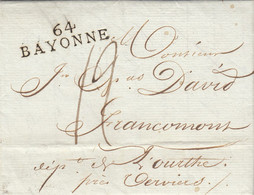 64
BAYONNE
Monsieur
David
Francomont
dépt. de l'ourthe
près Verviers